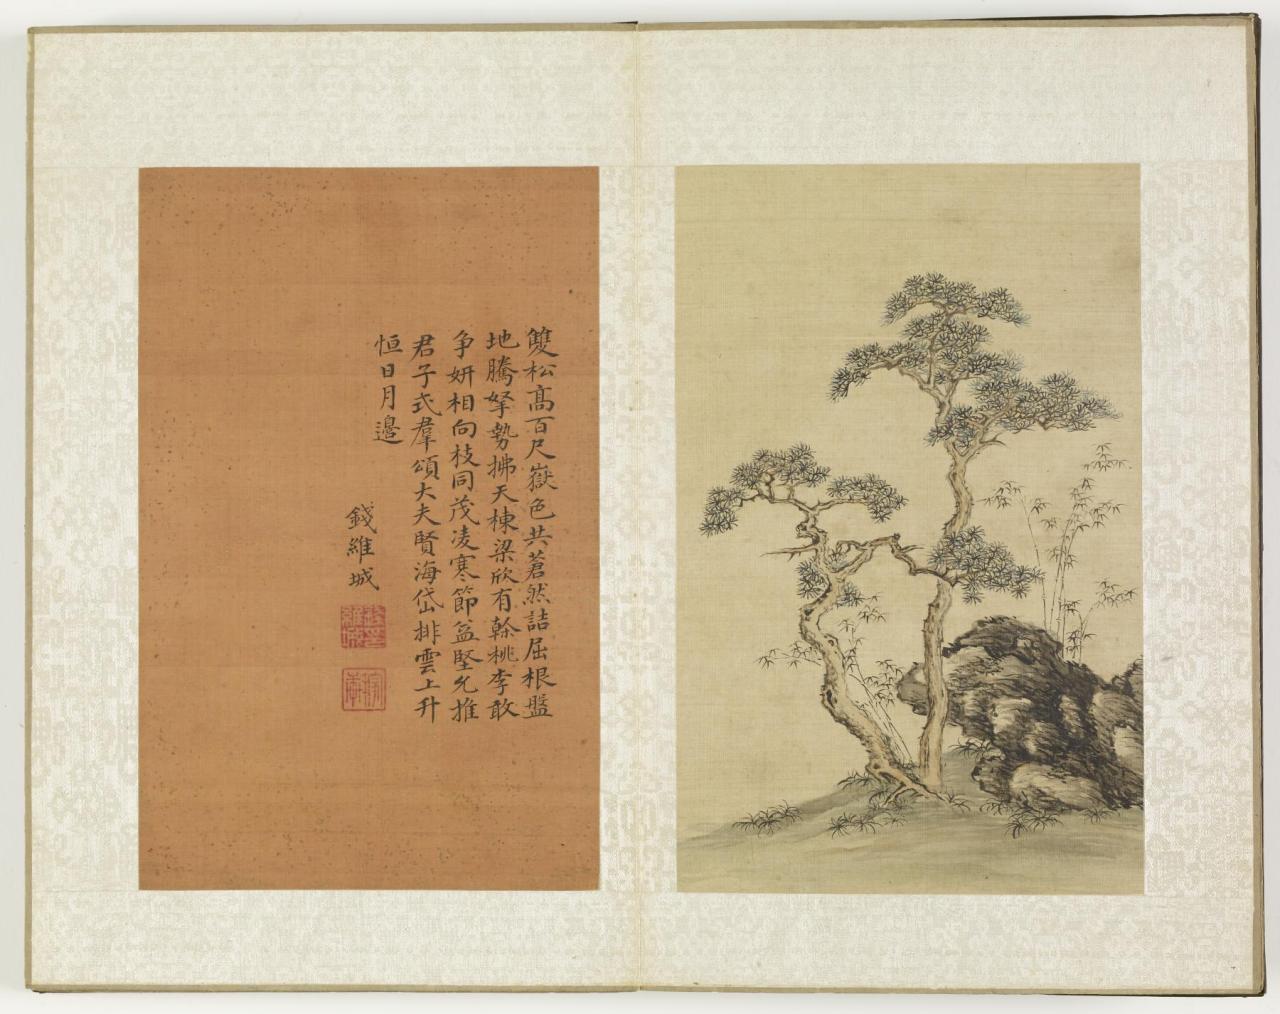 雙松高百尺嶽色共蒼然詰屈根盤
地騰拏勢拂天棟梁欣有榦桃李敢
争妍相向枝同茂凌寒節益堅允推
君子式羣頌大夫賢海岱排雲上升
恒日月邉
錢維城